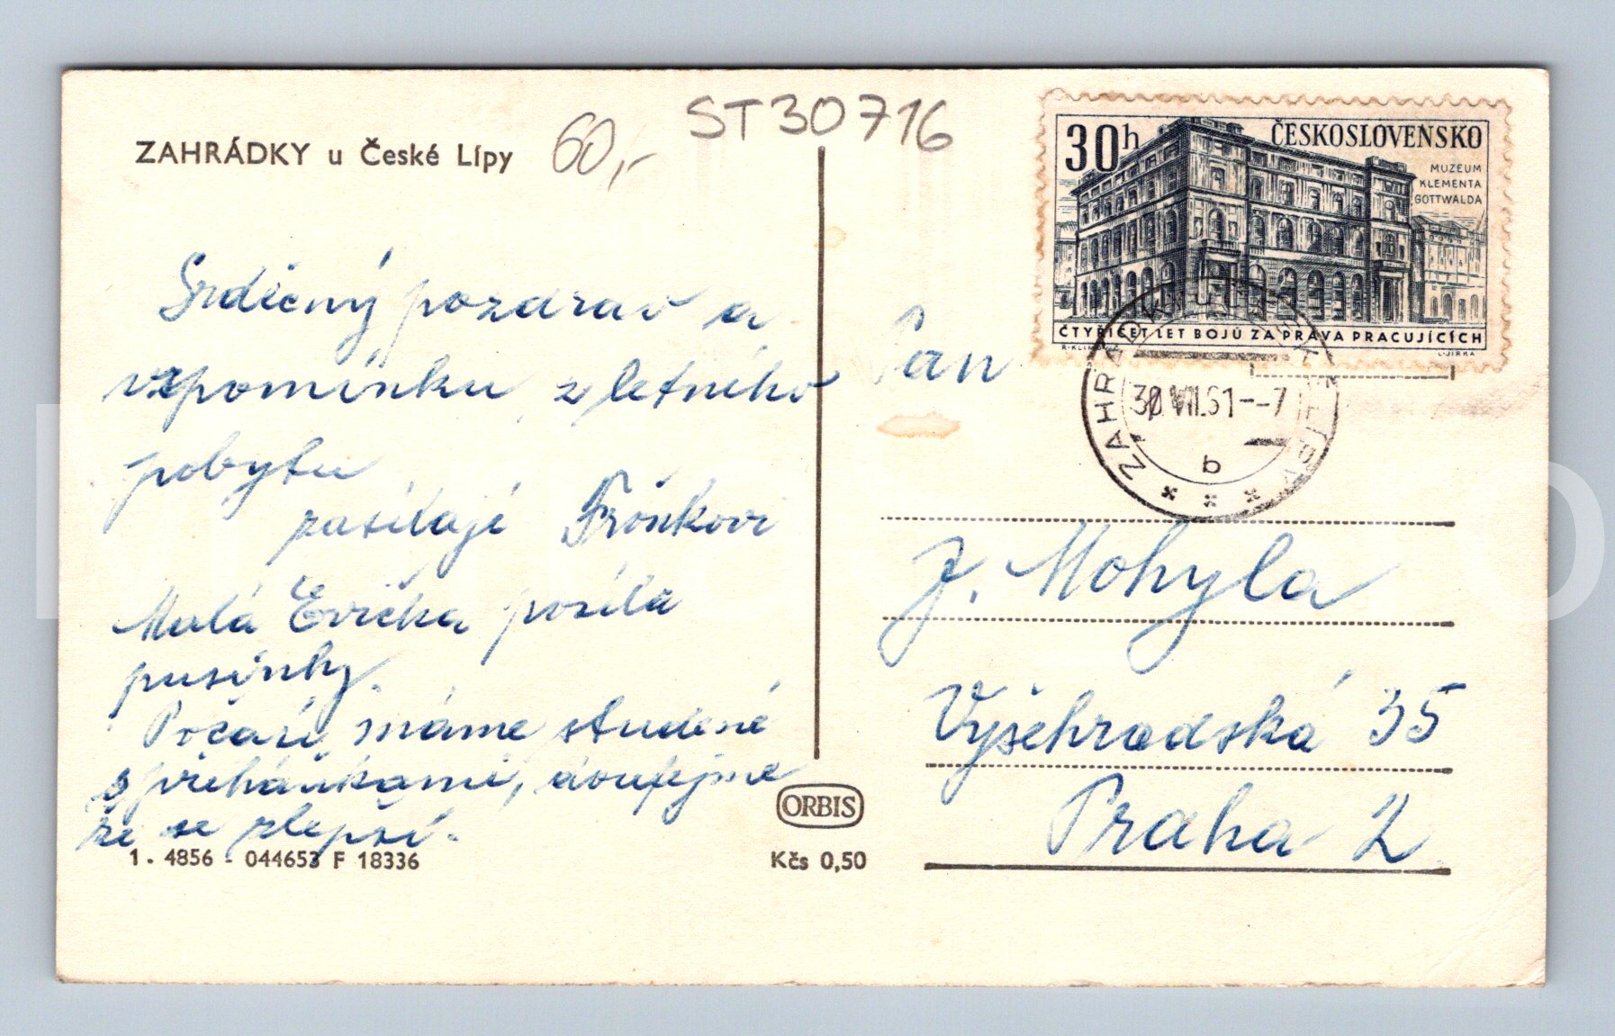 ZAHRÁDKY u České Lípy
60,-
ST30716
30h ČESKOSLOVENSKO
MUZEUM
KLEMENTA
GOTTWALDA
ČTYŘICET LET BOJŮ ZA PRÁVA PRACUJÍCÍCH
L. JIRKA
30.VII.61--7
b
Srdečný pozdrav a
vzpomínku z letného
pobytu
zasílají Froňkovi
Malá Evička posílá
pusinky.
Počasí máme studené
s přeháňkami, doufejme
že se zlepší.
Pan
J. Mohyla
Vyšehradská 35
Praha 2
ORBIS
1. 4856 - 044653 F 18336
Kčs 0,50